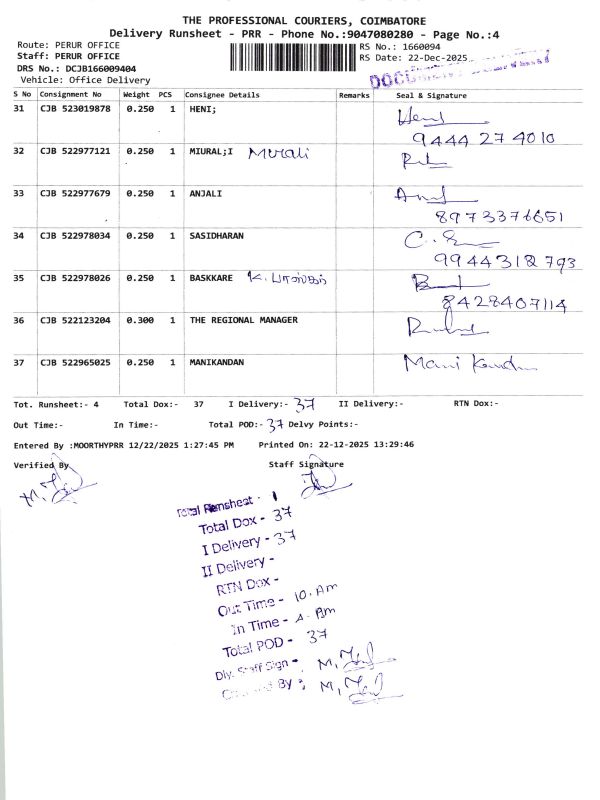 THE PROFESSIONAL COURIERS, COIMBATORE
Delivery Runsheet - PRR - Phone No.:9047080280 - Page No.:4
Route: PERUR OFFICE RS No.: 1660094
Staff: PERUR OFFICE RS Date: 22-Dec-2025
DRS No.: DCJB166009404
Vehicle: Office Delivery
S No Consignment No Weight PCS Consignee Details Remarks Seal & Signature
31 CJB 523019878 0.250 1 HENI;
9444 27 4010
32 CJB 522977121 0.250 1 MIURAL;I Murali
33 CJB 522977679 0.250 1 ANJALI
8973376651
34 CJB 522978034 0.250 1 SASIDHARAN
9944318793
35 CJB 522978026 0.250 1 BASKKARE K. பாஸ்கர்
8428407114
36 CJB 522123204 0.300 1 THE REGIONAL MANAGER
37 CJB 522965025 0.250 1 MANIKANDAN
Tot. Runsheet:- 4 Total Dox:- 37 I Delivery:- 37 II Delivery:- RTN Dox:-
Out Time:- In Time:- Total POD:- 37 Delvy Points:-
Entered By :MOORTHYPRR 12/22/2025 1:27:45 PM Printed On: 22-12-2025 13:29:46
Verified By Staff Signature
Total Runsheet - 1
Total Dox - 37
I Delivery - 37
II Delivery -
RTN Dox -
Out Time - 10. Am
In Time - 4. Pm
Total POD - 37
Dly. Staff Sign -
By :